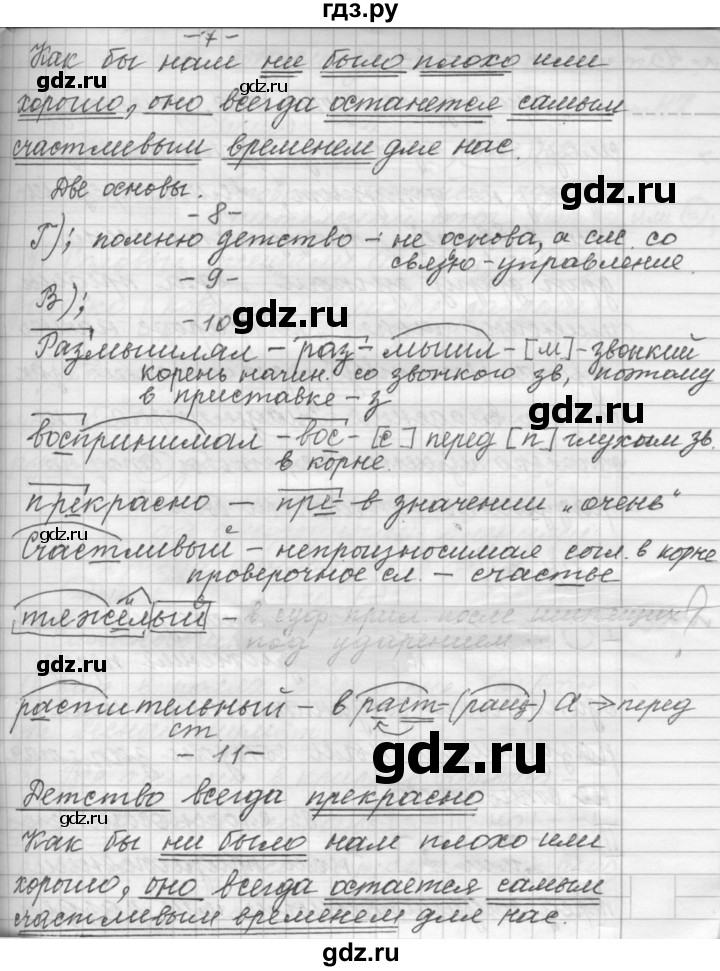 гдз.ру
- 7 -
Как бы нам ни было плохо или
хорошо, оно всегда останется самым
счастливым временем для нас.
Две основы.
- 8 -
Г); помню детство - не основа, а см. со
связью - управление.
- 9 -
В);
- 10 -
Размышлял - раз - мышл - [м] - звонкий
корень начин. со звонкого зв, поэтому
в приставке - з
воспринимал - вос - [с] перед [п] глухим зв.
в корне.
прекрасно - пре - в значении „очень“
счастливый - непроизносимая согл. в корне
проверочное сл. - счастье
тяжёлый - в суф прил после шипящих
под ударением -
растительный - в раст - (ращ) а → перед
ст
- 11 -
Детство всегда прекрасно
Как бы ни было нам плохо или
хорошо, оно всегда остается самым
счастливым временем для нас.
gdz.ru
gdz.ru
gdz.ru
gdz.ru
gdz.ru
gdz.ru
gdz.ru
gdz.ru
gdz.ru
gdz.ru
gdz.ru
gdz.ru
gdz.ru
gdz.ru